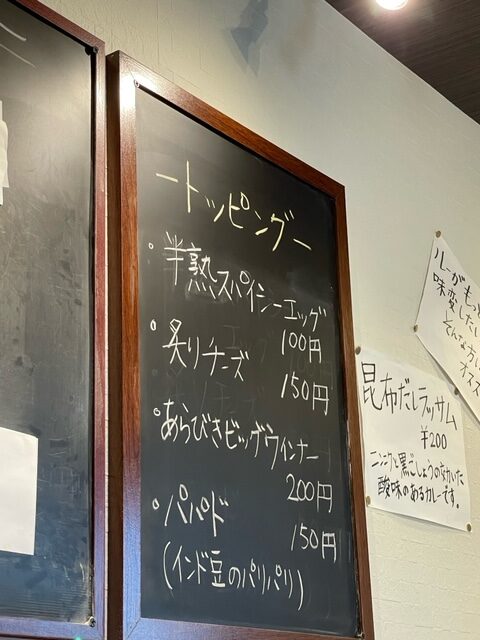 ートッピングー
・半熟スパイシーエッグ
100円
・炙りチーズ
150円
・あらびきビッグウィンナー
200円
・パパド
150円
(インド豆のパリパリ)
ルーがもっ
味変したい
そんな方
オスス
昆布だしラッサム
¥200
ニンニクと黒こしょうのきいた
酸味のあるカレーです。